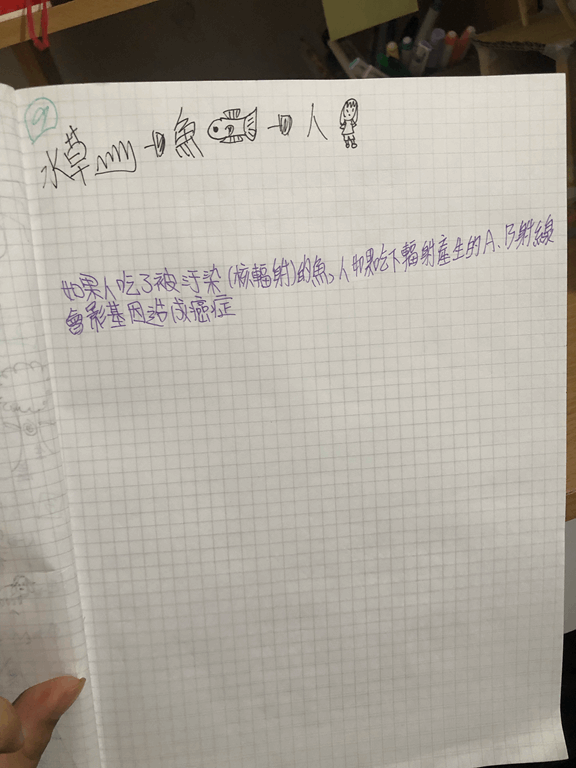 9
水草 → 魚 → 人
如果人吃了被汙染(核輻射)的魚,人如果吃下輻射產生的A、B射線
會影基因造成癌症